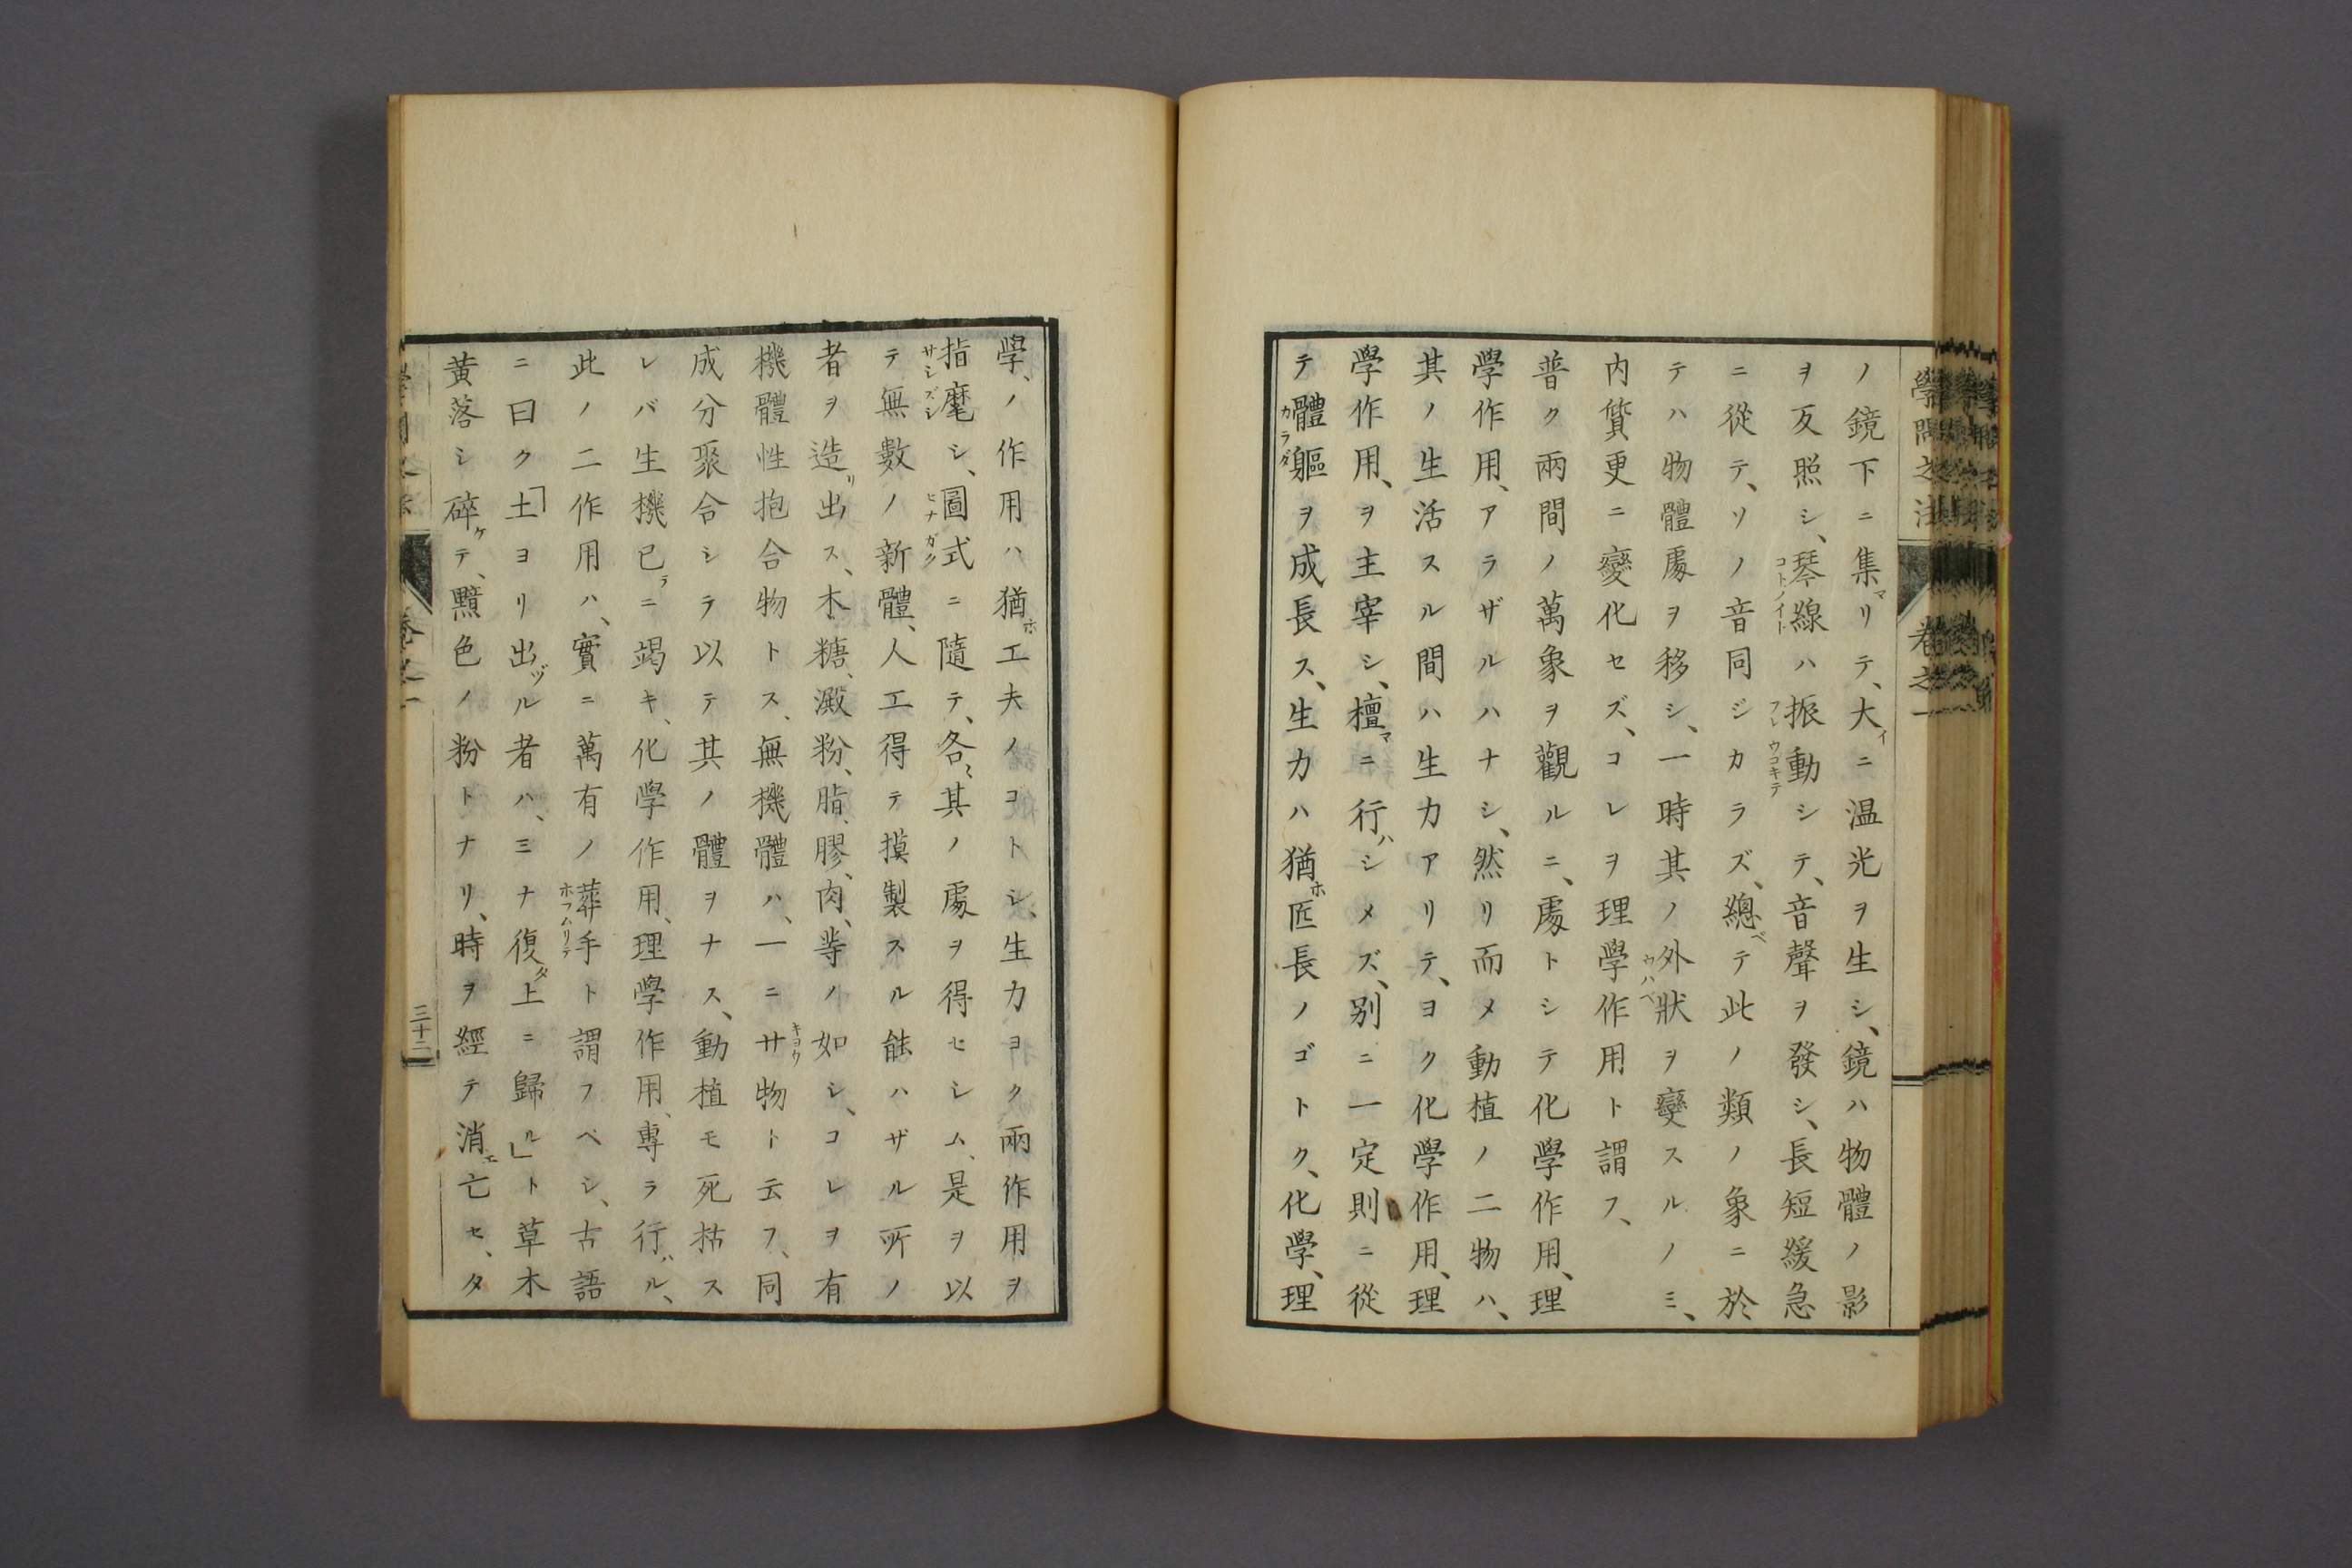 學問之法 卷之一
ノ鏡下ニ集マリテ、大イニ温光ヲ生シ、鏡ハ物體ノ影
ヲ反照シ、琴線ハ振動シテ、音聲ヲ發シ、長短緩急
ニ從テ、ソノ音同ジカラズ、總ベテ此ノ類ノ象ニ於
テハ物體處ヲ移シ、一時其ノ外狀ヲ變スルノミ、
内質更ニ變化セズ、コレヲ理學作用ト謂フ、
普ク兩間ノ萬象ヲ觀ルニ、處トシテ化學作用、理
學作用、アラザルハナシ、然リ而メ動植ノ二物ハ、
其ノ生活スル間ハ生力アリテ、ヨク化學作用、理
學作用、ヲ主宰シ、檀マニ行ハシメズ、別ニ一定則ニ從
テ體軀ヲ成長ス、生力ハ猶ホ匠長ノゴトク、化學、理
學、ノ作用ハ猶ホ工夫ノコトシ、生力ヨク兩作用ヲ
指麾シ、圖式ニ隨テ、各〻其ノ處ヲ得セシム、是ヲ以
テ無數ノ新體、人工得テ摸製スル能ハザル所ノ
者ヲ造リ出ス、木糖、澱粉、脂、膠、肉、等ノ如シ、コレヲ有
機體性抱合物トス、無機體ハ、一ニサ物ト云フ、同
成分聚合シテ以テ其ノ體ヲナス、動植モ死枯ス
レバ生機已ラニ竭キ、化學作用、理學作用、專ラ行ハル、
此ノ二作用ハ、實ニ萬有ノ葬手ト謂フベシ、古語
ニ曰ク「土ヨリ出ヅル者ハ、ミナ復タ土ニ歸ル」ト草木
黄落シ碎ケテ、黯色ノ粉トナリ、時ヲ經テ消エ亡セ、タ
三十二